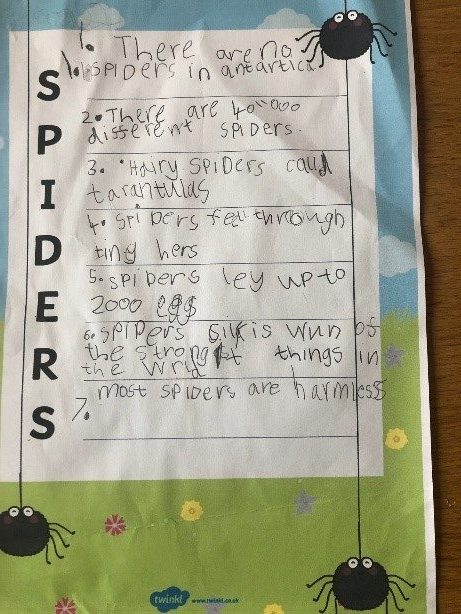 SPIDERS
1. There are no
1. SPIDers in antartica
2. There are 40"000
different SPIDers.
3. Hairy SPIDers cauld
tarantulas
4. Spibers feel through
tiny hers
5. SpiDers ley up to
2000 eggs
6. SPIPers Silk is wun of
the strongest things in
the wrld
7. most SPiDers are harmless
twinkl www.twinkl.co.uk